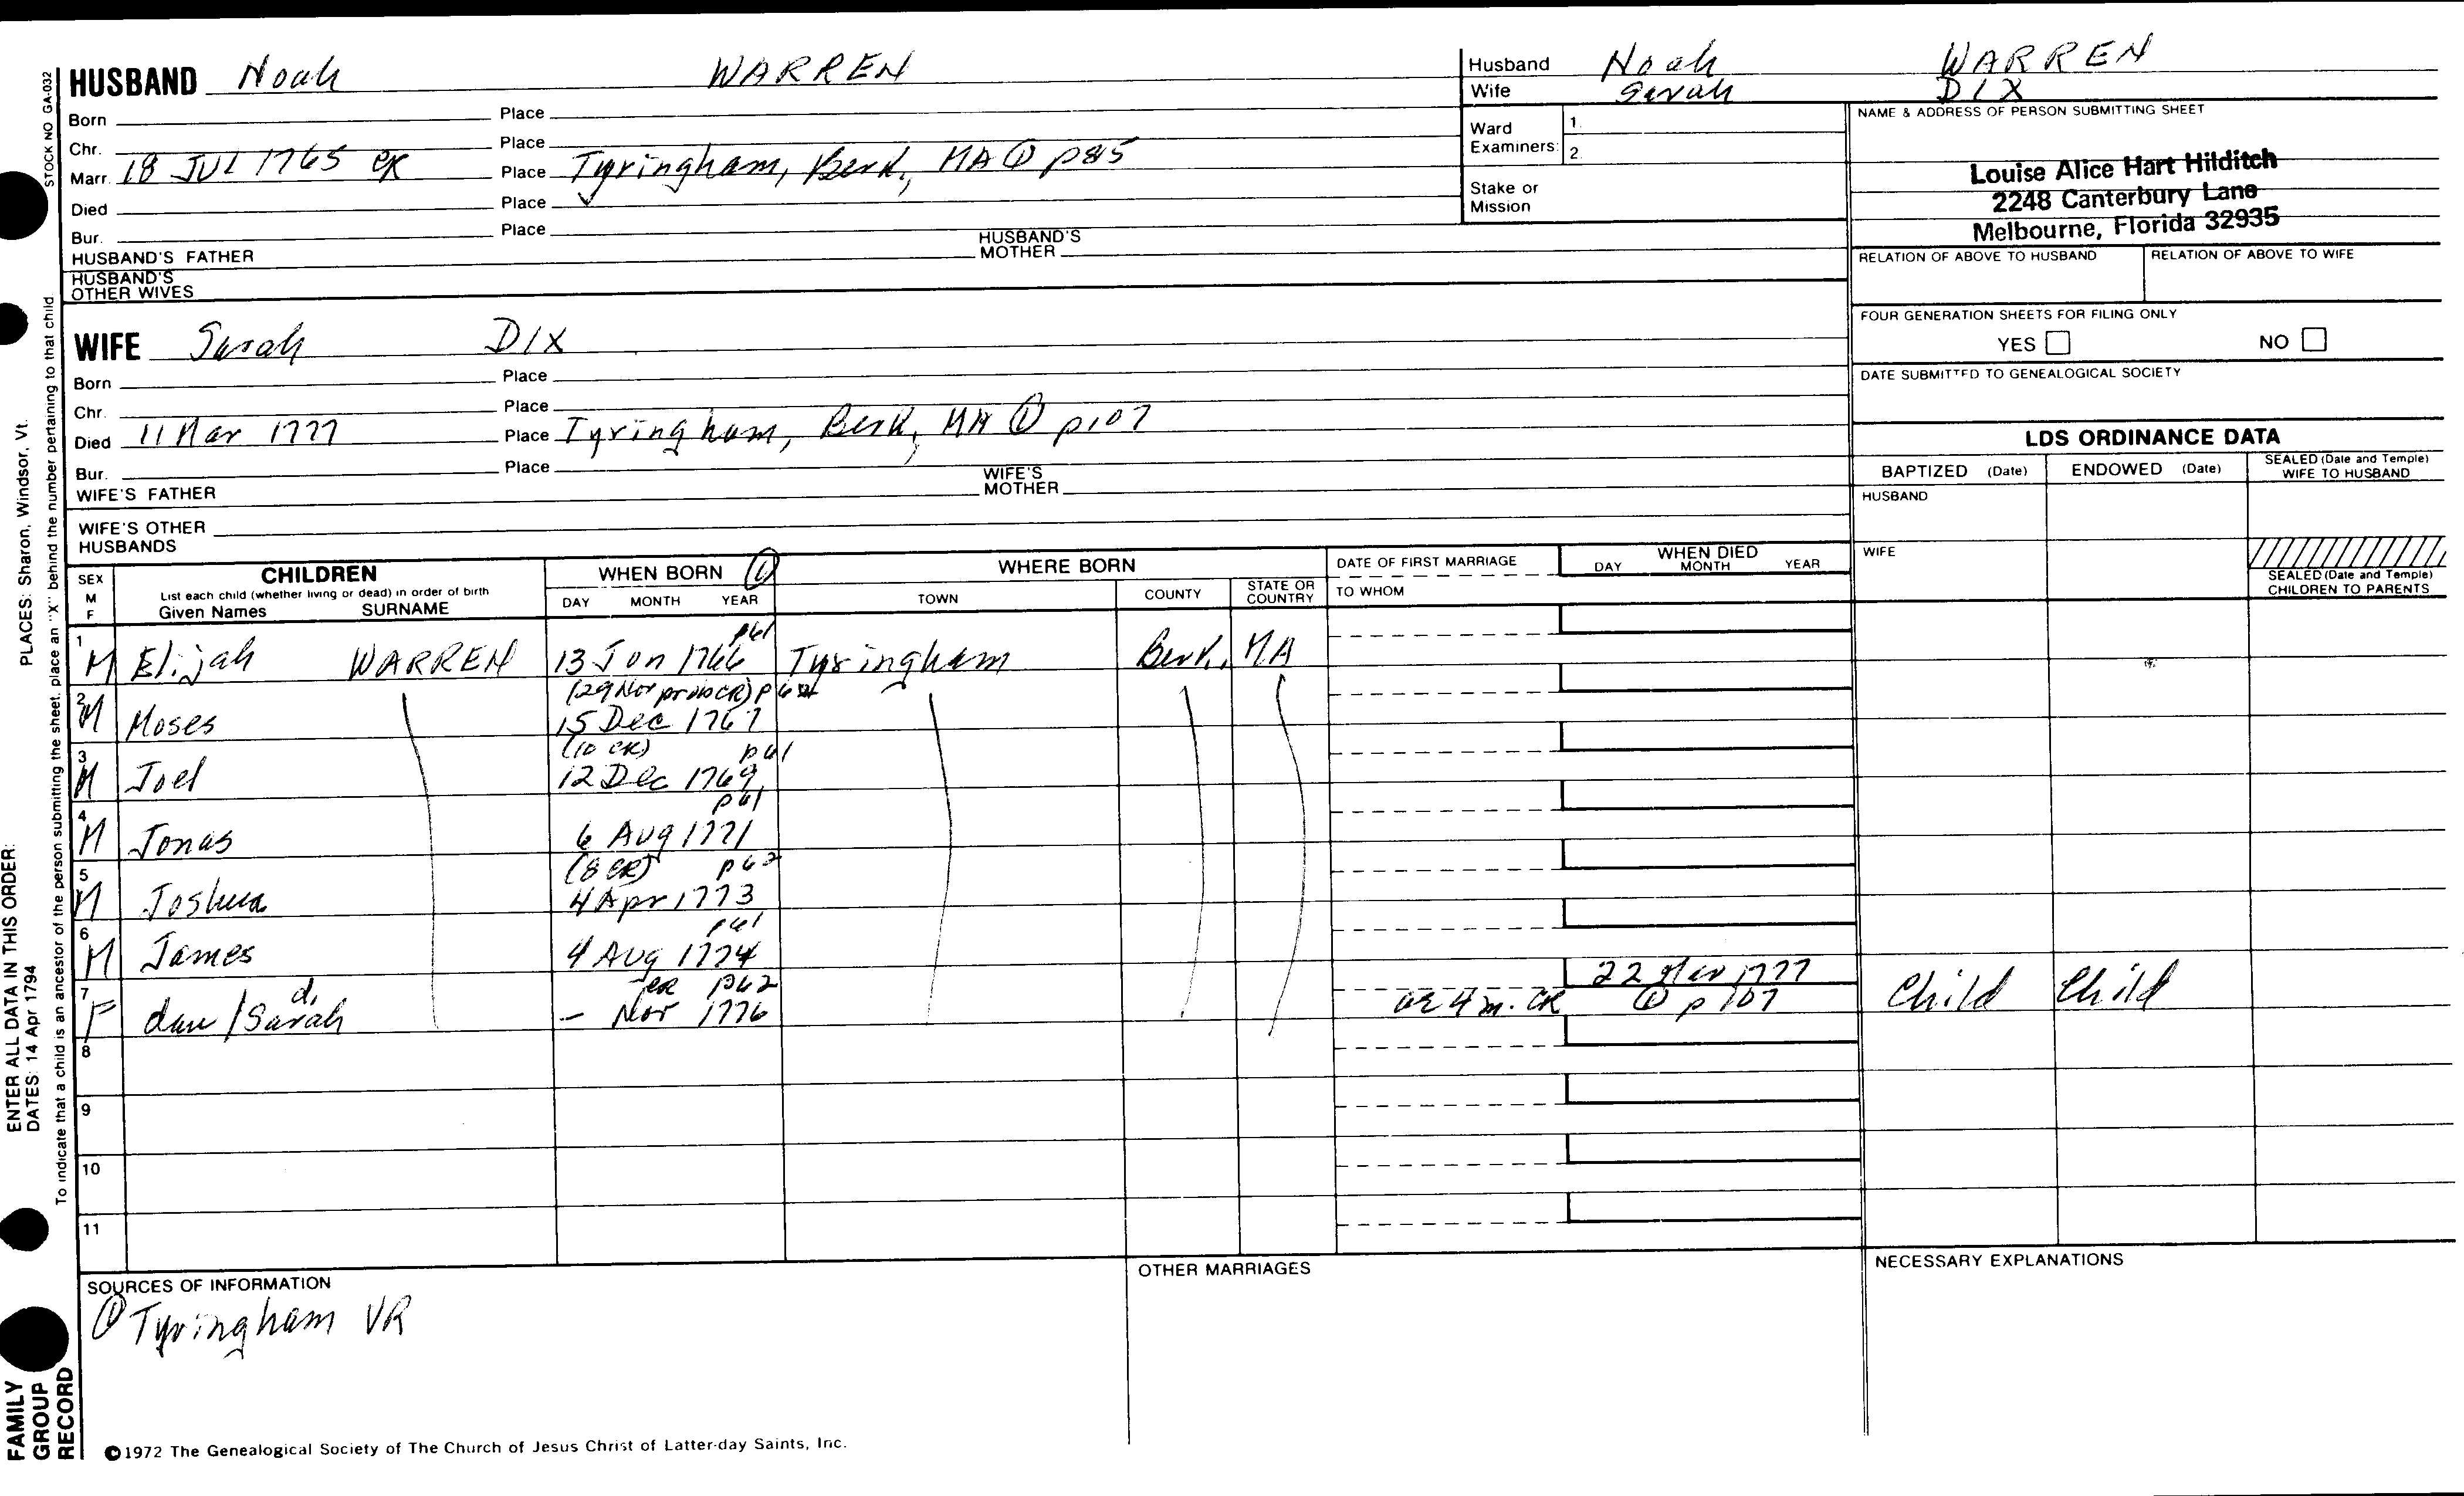 HUSBAND Noah WARREN
Born Place
Chr. Place
Marr. 18 JUL 1765 CR Place Tyringham, Berk., MA ① p85
Died Place
Bur. Place
HUSBAND'S FATHER HUSBAND'S MOTHER
HUSBAND'S OTHER WIVES
WIFE Sarah DIX
Born Place
Chr. Place
Died 11 Mar 1777 Place Tyringham, Berk, MA ① p107
Bur. Place
WIFE'S FATHER WIFE'S MOTHER
WIFE'S OTHER HUSBANDS
Husband Noah WARREN
Wife Sarah DIX
Ward Examiners: 1. 2.
Stake or Mission
NAME & ADDRESS OF PERSON SUBMITTING SHEET
Louise Alice Hart Hilditch
2248 Canterbury Lane
Melbourne, Florida 32935
RELATION OF ABOVE TO HUSBAND RELATION OF ABOVE TO WIFE
FOUR GENERATION SHEETS FOR FILING ONLY
YES NO
DATE SUBMITTED TO GENEALOGICAL SOCIETY
LDS ORDINANCE DATA
BAPTIZED (Date) ENDOWED (Date) SEALED (Date and Temple) WIFE TO HUSBAND
HUSBAND
WIFE
SEALED (Date and Temple) CHILDREN TO PARENTS
SEX M F
CHILDREN
List each child (whether living or dead) in order of birth
Given Names SURNAME
WHEN BORN ①
DAY MONTH YEAR
WHERE BORN
TOWN COUNTY STATE OR COUNTRY
DATE OF FIRST MARRIAGE
TO WHOM
WHEN DIED
DAY MONTH YEAR
p61
1 M Elijah WARREN 13 Jan 1766 Tyringham Berk. MA
2 M Moses 15 Dec 1767
(10 CR) p61
3 M Joel 12 Dec 1769
p61
4 M Jonas 6 Aug 1771
(8 CR) p62
5 M Joshua 4 Apr 1773
p61
6 M James 4 Aug 1774
CR p62 22 Mar 1777
7 F dau/Sarah d. – Nov 1776 ae 4 m. CR ① p107 Child Child
8
9
10
11
SOURCES OF INFORMATION
① Tyringham VR
OTHER MARRIAGES
NECESSARY EXPLANATIONS
©1972 The Genealogical Society of The Church of Jesus Christ of Latter-day Saints, Inc.
STOCK NO GA-032
To indicate that a child is an ancestor of the person submitting the sheet, place an "X" behind the number pertaining to that child.
ENTER ALL DATA IN THIS ORDER: PLACES: Sharon, Windsor, Vt.
DATES: 14 Apr 1794
FAMILY
GROUP
RECORD